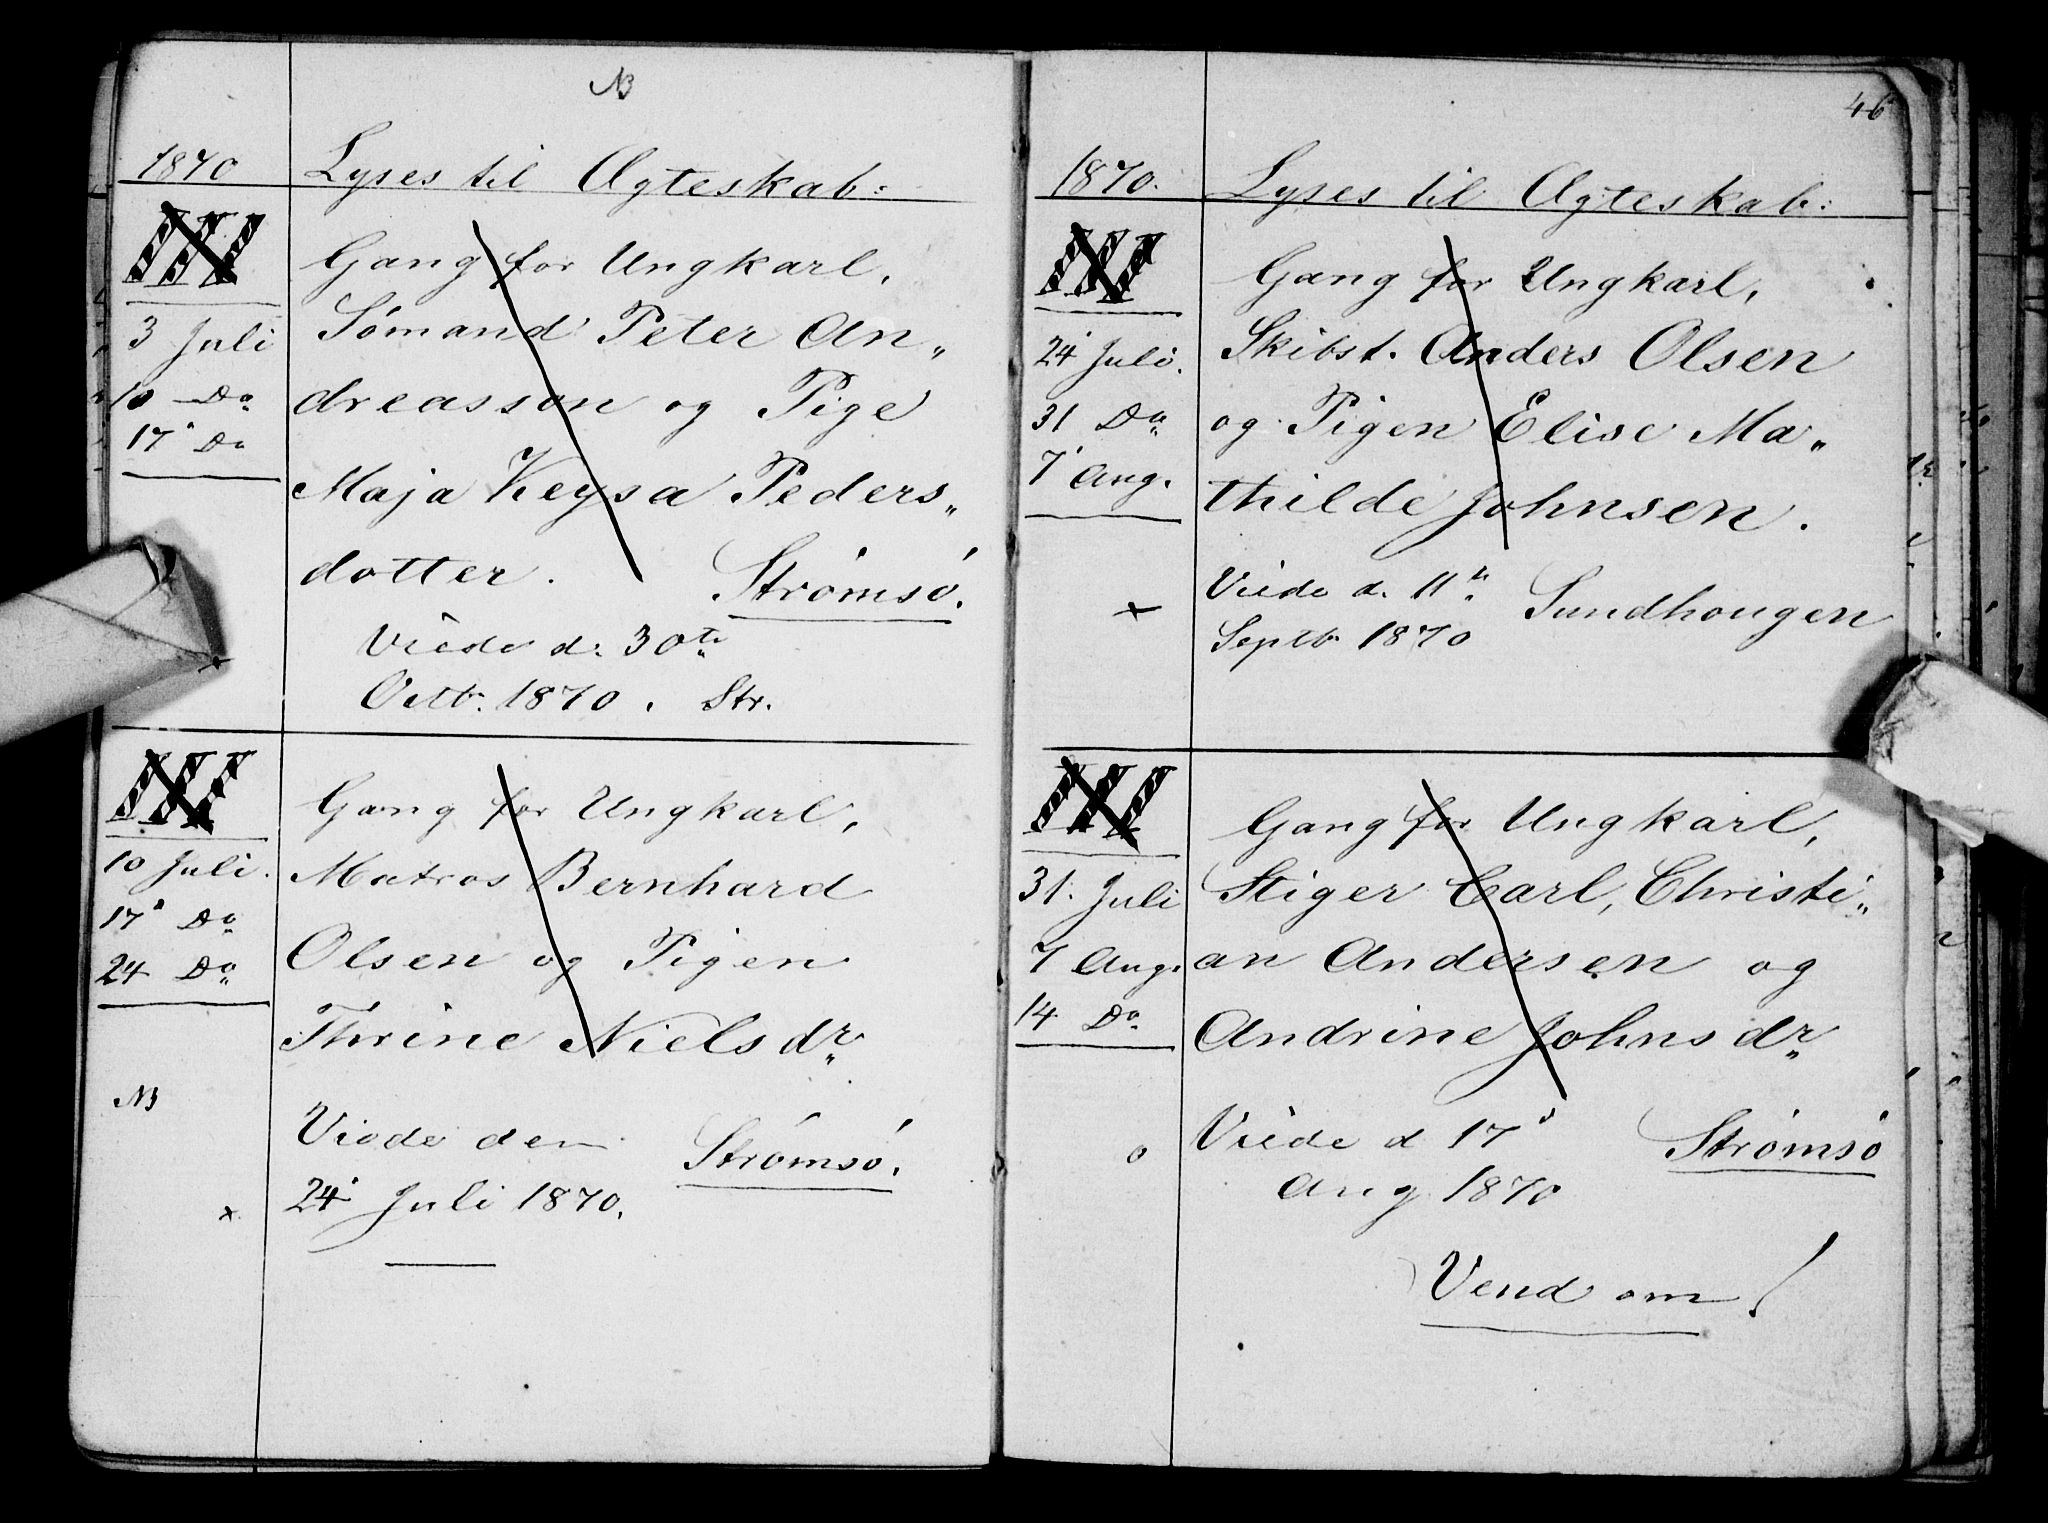 NB
1870 Lyses til Ægteskab:
III
Gang for Ungkarl,
3 Juli Sømand Peter An„
10 Do dreasson og Pige
17 Do
Maja Keysa Peders„
dotter. Strømsø.
Viede d. 30te
Octb. 1870. Str.
III
Gang for Ungkarl,
10 Juli. Matros Bernhard
17 Do
24 Do Olsen og Pigen
Thrine Nielsdr
NB
Viede den Strømsø.
x 24 Juli 1870.
46
1870. Lyses til Ægteskab:
III
Gang for Ungkarl,
24 Juli. Skibst. Anders Olsen
31 Do og Pigen Elise Ma„
7 Aug. thilde Johnsen.
x Viede d. 11te Sundhougen
Septb 1870
III
Gang for Ungkarl,
31. Juli Stiger Carl, Christi„
7 Aug. an Andersen og
14 Do Andrine Johnsdr
o Viede d 17 Strømsø
Aug 1870
Vend om!